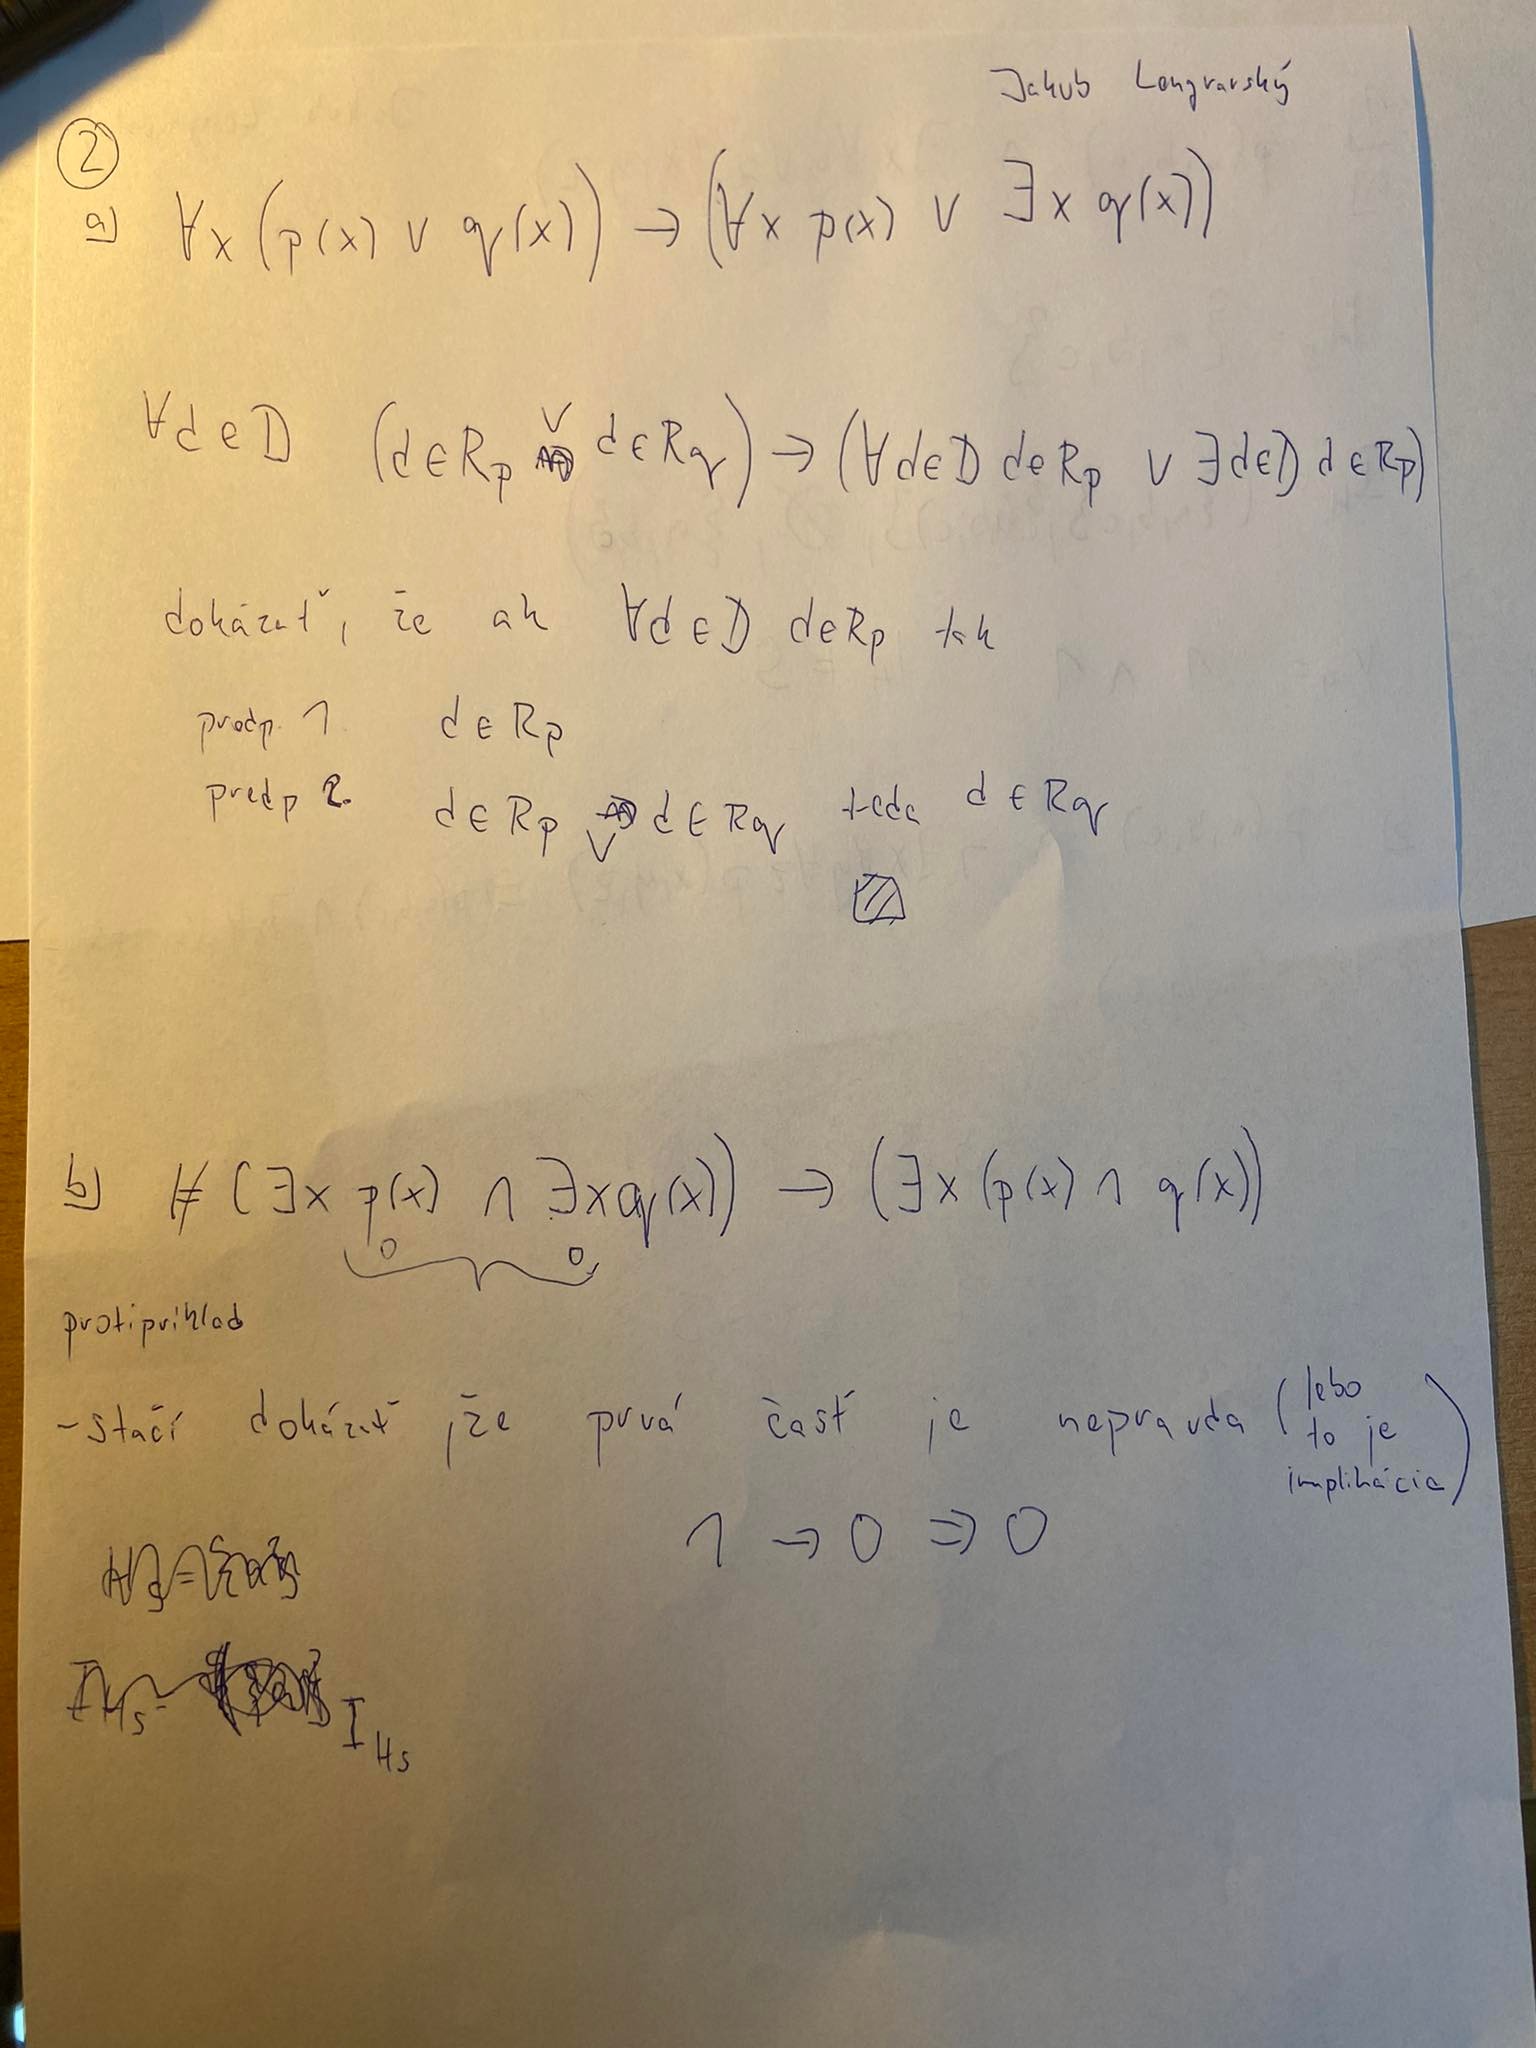 Jakub Longvarský
2
a) ∀x (p(x) ∨ q(x)) → (∀x p(x) ∨ ∃x q(x))
∀d∈D (d∈Rp ∨ d∈Rq) → (∀d∈D d∈Rp ∨ ∃d∈D d∈Rp)
dokázať, že ak ∀d∈D d∈Rp tak
predp. 1. d∈Rp
predp 2. d∈Rp ∨ d∈Rq teda d∈Rq
b) ⊭ (∃x p(x) ∧ ∃x q(x)) → (∃x (p(x) ∧ q(x))
0 0
protipríklad
- stačí dokázať, že prvá časť je nepravda (lebo
to je
implikácia)
1 → 0 ⇒ 0
I_Hs